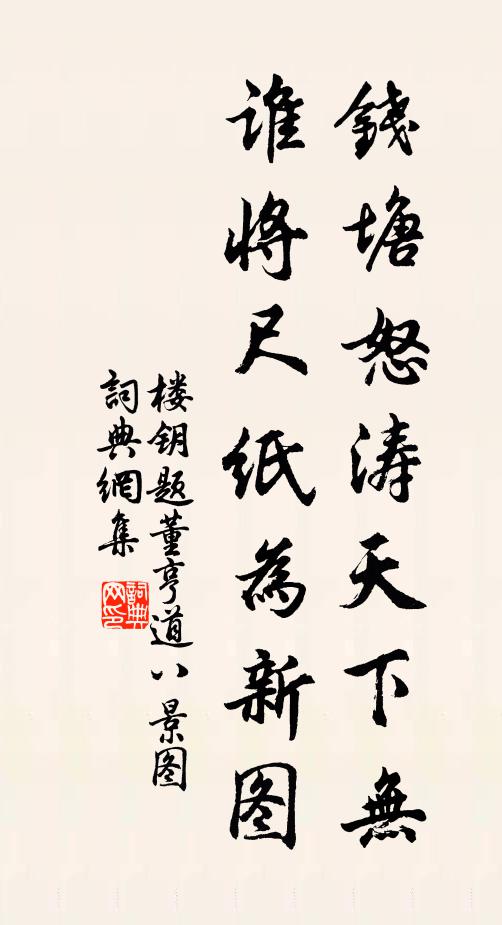 錢塘怒涛天下無
谁將尺紙為新图
楼钥题董亨道八景图
詞典網集
詞典网印